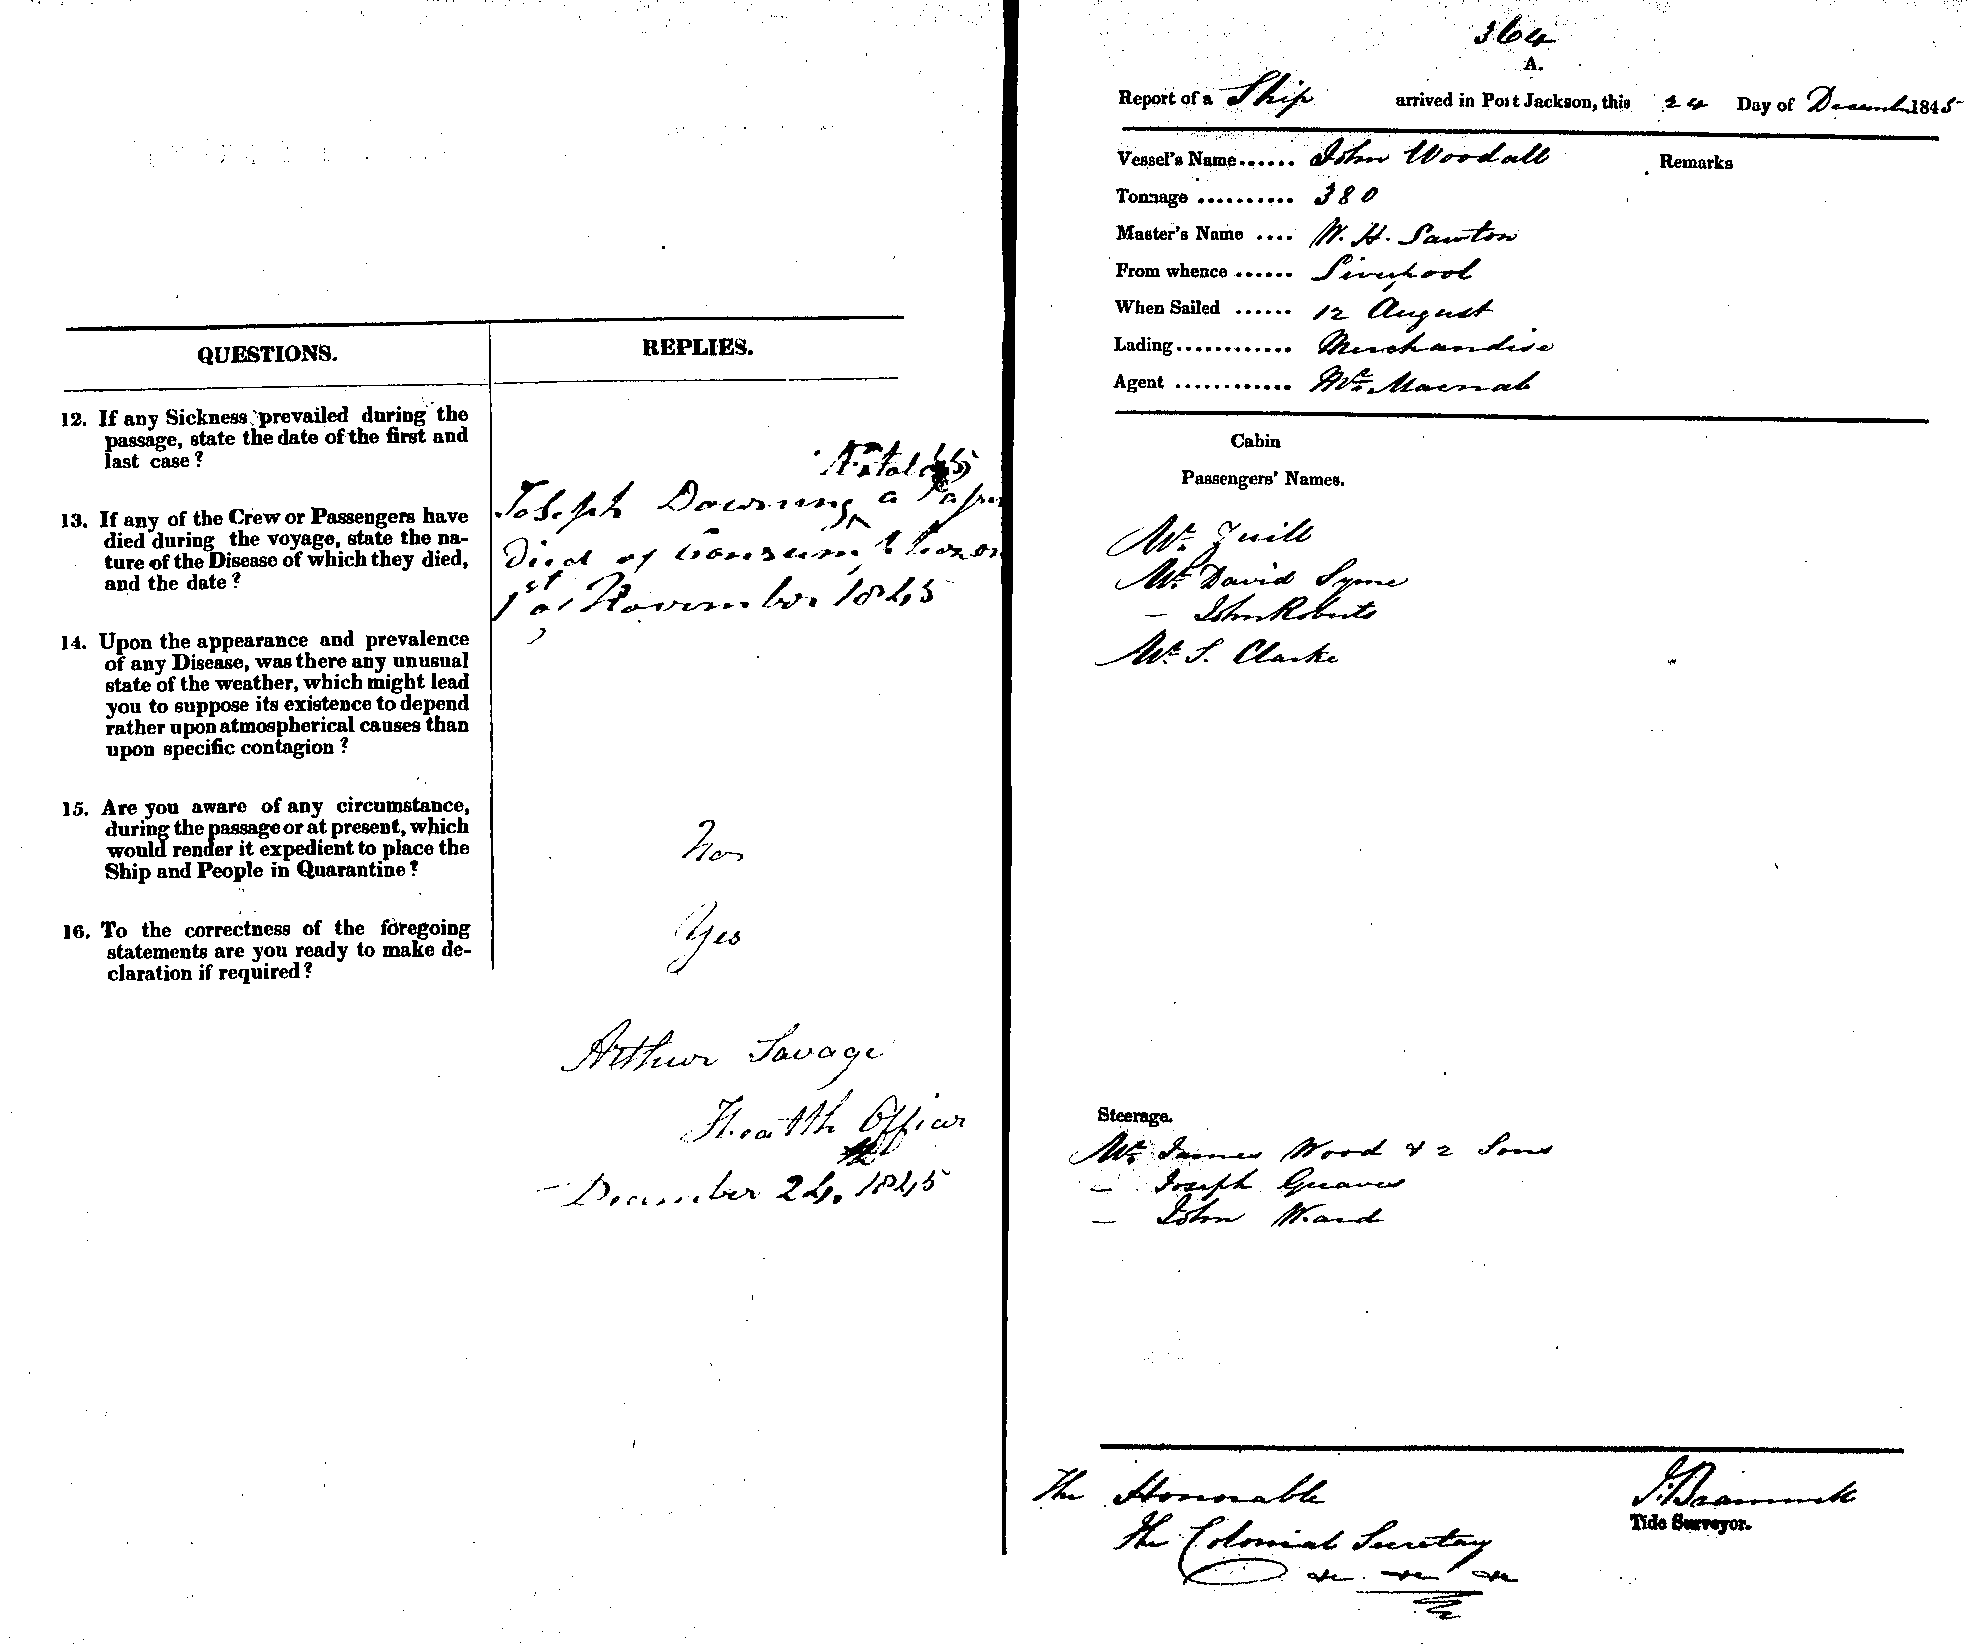 QUESTIONS.
REPLIES.
12. If any Sickness prevailed during the
passage, state the date of the first and
last case?
13. If any of the Crew or Passengers have
died during the voyage, state the na-
ture of the Disease of which they died,
and the date?
Joseph Downing a
Died of Consumption on
1st of November 1845
14. Upon the appearance and prevalence
of any Disease, was there any unusual
state of the weather, which might lead
you to suppose its existence to depend
rather upon atmospherical causes than
upon specific contagion?
15. Are you aware of any circumstance,
during the passage or at present, which
would render it expedient to place the
Ship and People in Quarantine?
No
16. To the correctness of the foregoing
statements are you ready to make de-
claration if required?
Yes
Arthur Savage
Health Officer
December 24. 1845
364
A.
Report of a Ship arrived in Port Jackson, this 24 Day of December 1845
Vessel's Name...... John Woodall
Remarks
Tonnage .......... 380
Master's Name .... W. H. Sawton
From whence ...... Liverpool
When Sailed ...... 12 August
Lading............ Merchandise
Agent ............ Mr. Macnab
Cabin
Passengers' Names.
Mr. Quill
Mr. David Syme
– John Roberts
Mr. S. Clarke
Steerage.
Mr. James Wood & 2 Sons
– Joseph Greaves
– John Ward
The Honorable
The Colonial Secretary
&c &c &c
Tide Surveyor.